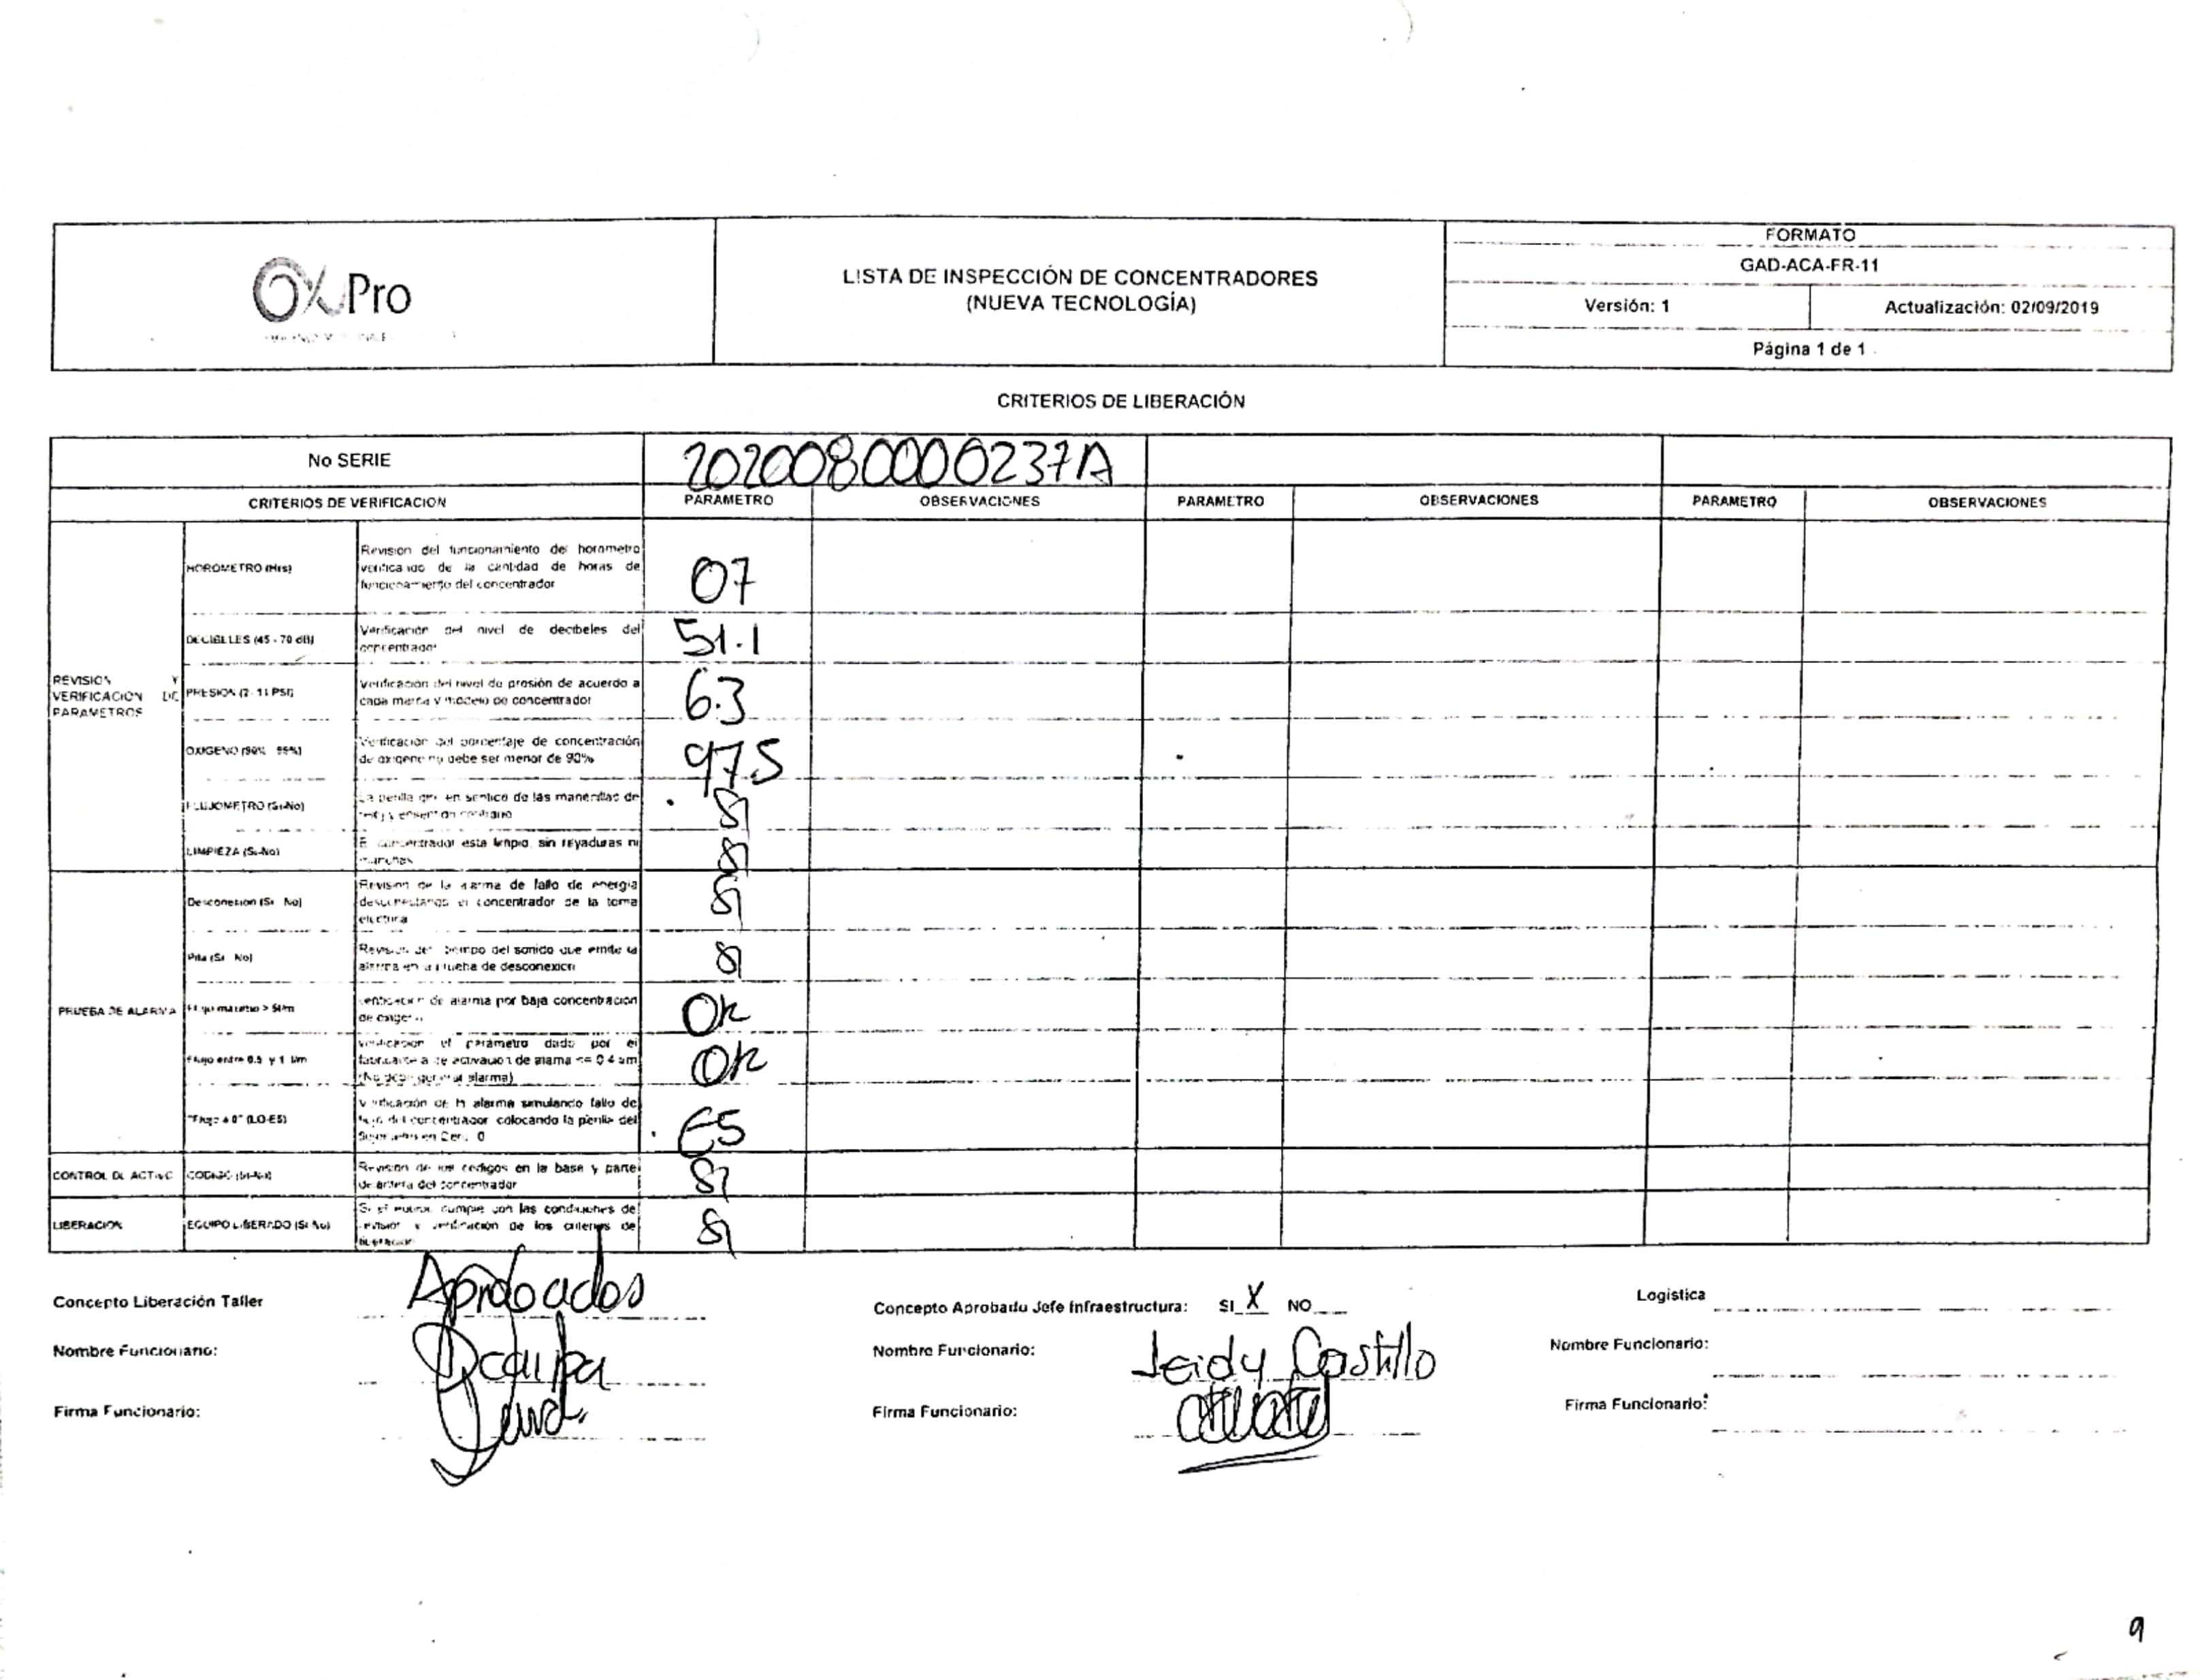 OxPro
LISTA DE INSPECCIÓN DE CONCENTRADORES
(NUEVA TECNOLOGÍA)
FORMATO
GAD-ACA-FR-11
Versión: 1
Actualización: 02/09/2019
Página 1 de 1
CRITERIOS DE LIBERACIÓN
No SERIE
2020080000237A
CRITERIOS DE VERIFICACION
PARAMETRO
OBSERVACIONES
PARAMETRO
OBSERVACIONES
PARAMETRO
OBSERVACIONES
REVISION Y
VERIFICACION DE
PARAMETROS
HOROMETRO (Hrs)
Revision del funcionamiento del horometro
verificando de la cantidad de horas de
funcionamiento del concentrador
07
DECIBELES (45 - 70 dB)
Verificación del nivel de decibeles del
concentrador
51.1
PRESION (7- 11 PSI)
Verificación del nivel de presión de acuerdo a
cada marca y modelo de concentrador
6.3
OXIGENO (90% 95%)
Verificación del porcentaje de concentración
de oxigeno no debe ser menor de 90%
97.5
FLUJOMETRO (Si-No)
La perilla gire en sentido de las manecillas de
Si
LIMPIEZA (Si-No)
El concentrador esta limpio, sin rayaduras ni
manchas
Si
PRUEBA DE ALARMA
Desconexion (Si No)
Revision de la alarma de fallo de energia
desconectando el concentrador de la toma
electrica
Si
Pita (Si No)
Revision del tiempo del sonido que emite la
alarma en la prueba de desconexion
Si
Flujo maximo > 5l/m
Verificacion de alarma por baja concentracion
de oxigeno
OK
Flujo entre 0.5 y 1 l/m
Verificacion el parametro dado por el
fabricante de activacion de alarma <= 0.4
(No debe generar alarma)
OK
"Flujo a 0" (LO-E5)
Verificación de la alarma simulando fallo de
flujo del concentrador colocando la perilla del
flujometro en Cero 0
E5
CONTROL DE ACTIVO
CODIGO (Si-No)
Revision de los codigos en la base y parte
delantera del concentrador
Si
LIBERACION
EQUIPO LIBERADO (Si No)
Si el equipo cumple con las condiciones de
revision y verificación de los criterios de
liberacion
Si
Concepto Liberación Taller
Aprobados
Concepto Aprobado Jefe Infraestructura: SI X NO
Logistica
Nombre Funcionario:
Nombre Funcionario:
Jeidy Castillo
Nombre Funcionario:
Firma Funcionario:
Firma Funcionario:
Firma Funcionario:
9